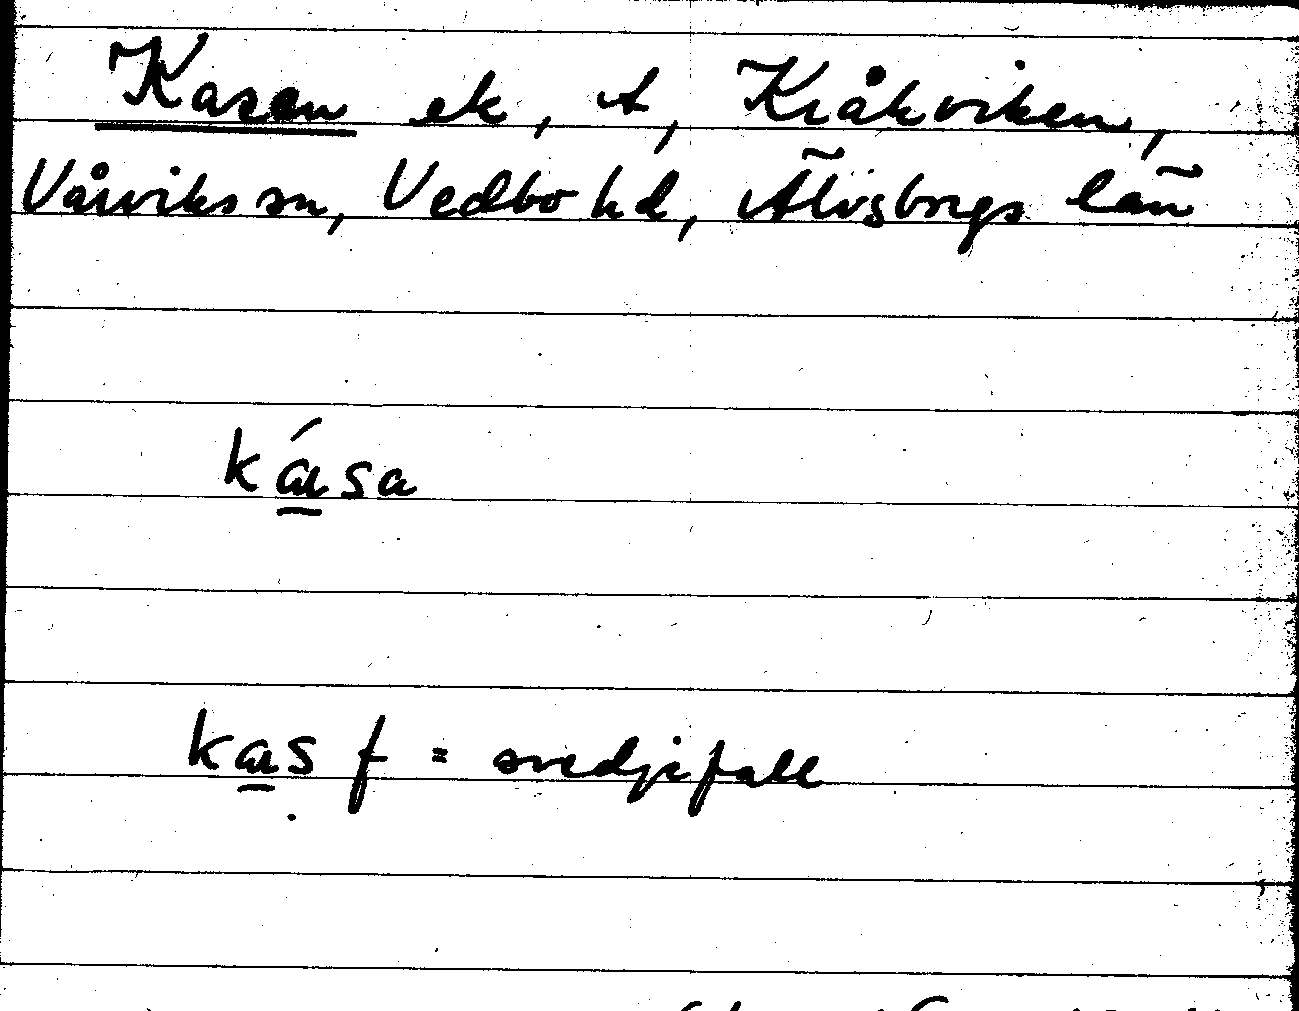 Kasen ek, t, Kråkviken,
Vårviks sn, Vedbo hd, Älvsborgs län
kása
kas f = svedjefall